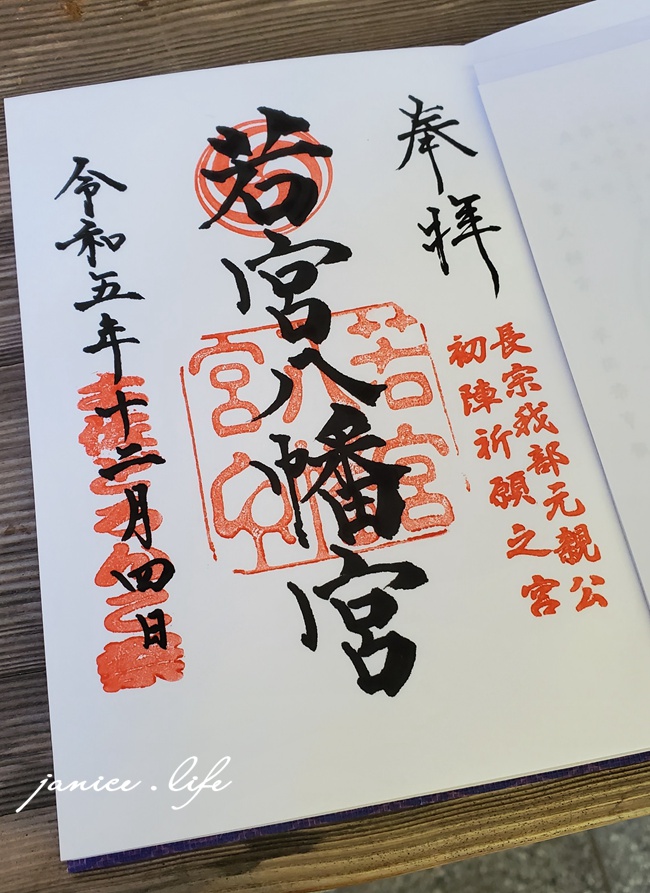 奉拝
長宗我部元親公
初陣祈願之宮
若宮八幡宮
若宮八幡宮
令和五年十二月四日
janice.life